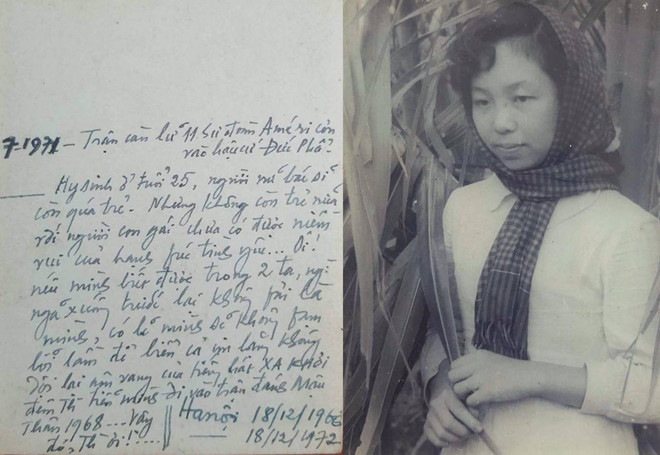 7-1971 - Trận càn lữ 11 Sư đoàn Améri cơn
vào hậu cứ Đức Phổ.
Hy sinh ở tuổi 25, người nữ bác sĩ
còn quá trẻ. Nhưng không còn trẻ nữa
với người con gái chưa có được niềm
vui của hạnh fúc tình yêu... Ôi!
nếu mình biết được trong 2 ta, ng
ngã xuống trước lại không fải là
mình, có lẽ mình sẽ không fạm
lỗi lầm để biển cả im lặng không
dội lại âm vang của tiếng hát XA KHƠI
đêm Th tiễn mình đi vào trận đánh Mậu
Thân 1968 ... Vậy
đó, Th ơi! .....
Hanội 18/12/1966
18/12/1972